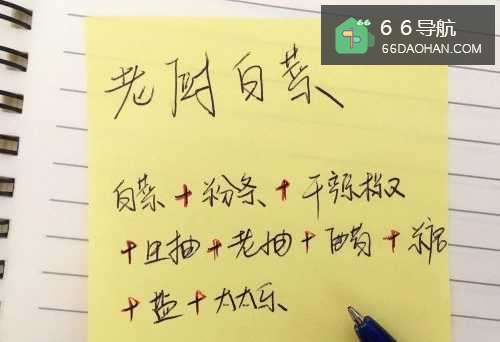 66导航
66DAOHAN.COM
老厨白菜
白菜+粉条+干辣椒
+旦抽+老抽+醋+糖
+盐+太太乐